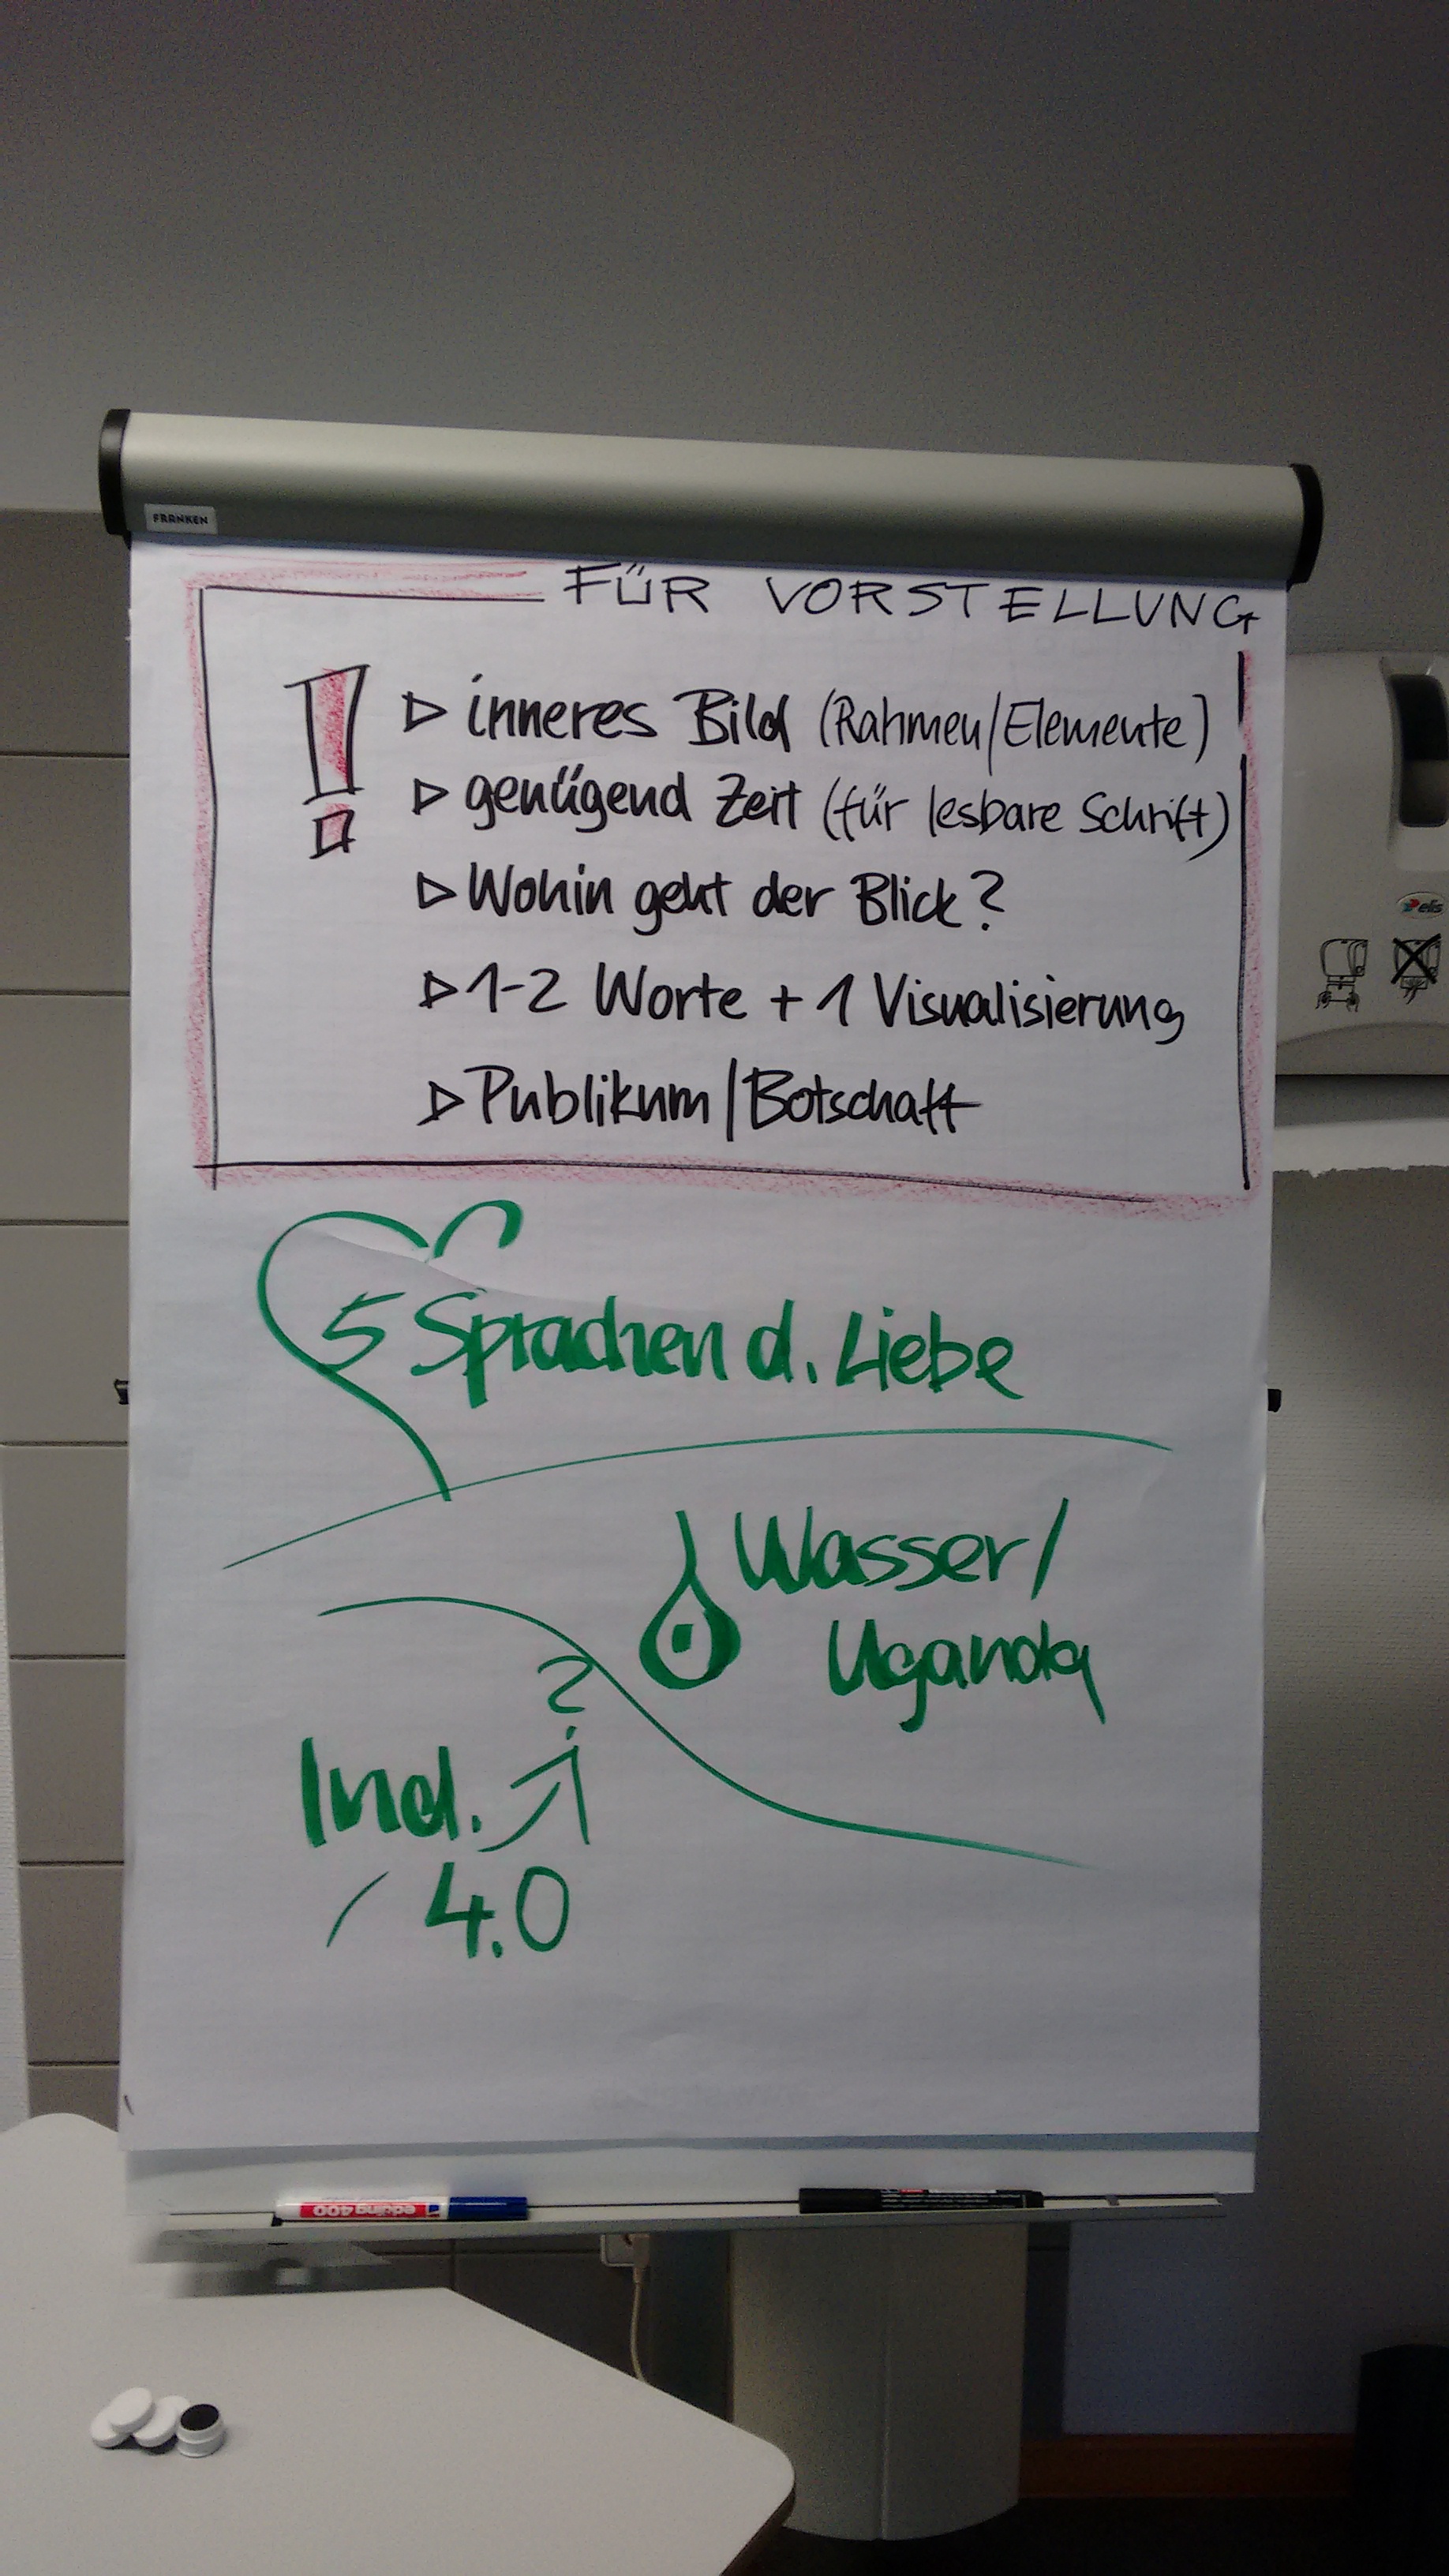 FRANKEN
FÜR VORSTELLUNG
! ▷ inneres Bild (Rahmen/Elemente)
▷ genügend Zeit (für lesbare Schrift)
▷ Wohin geht der Blick?
▷ 1-2 Worte + 1 Visualisierung
▷ Publikum/Botschaft
elis
5 Sprachen d. Liebe
Wasser/
Uganda
?
Ind.
4.0
edding 400